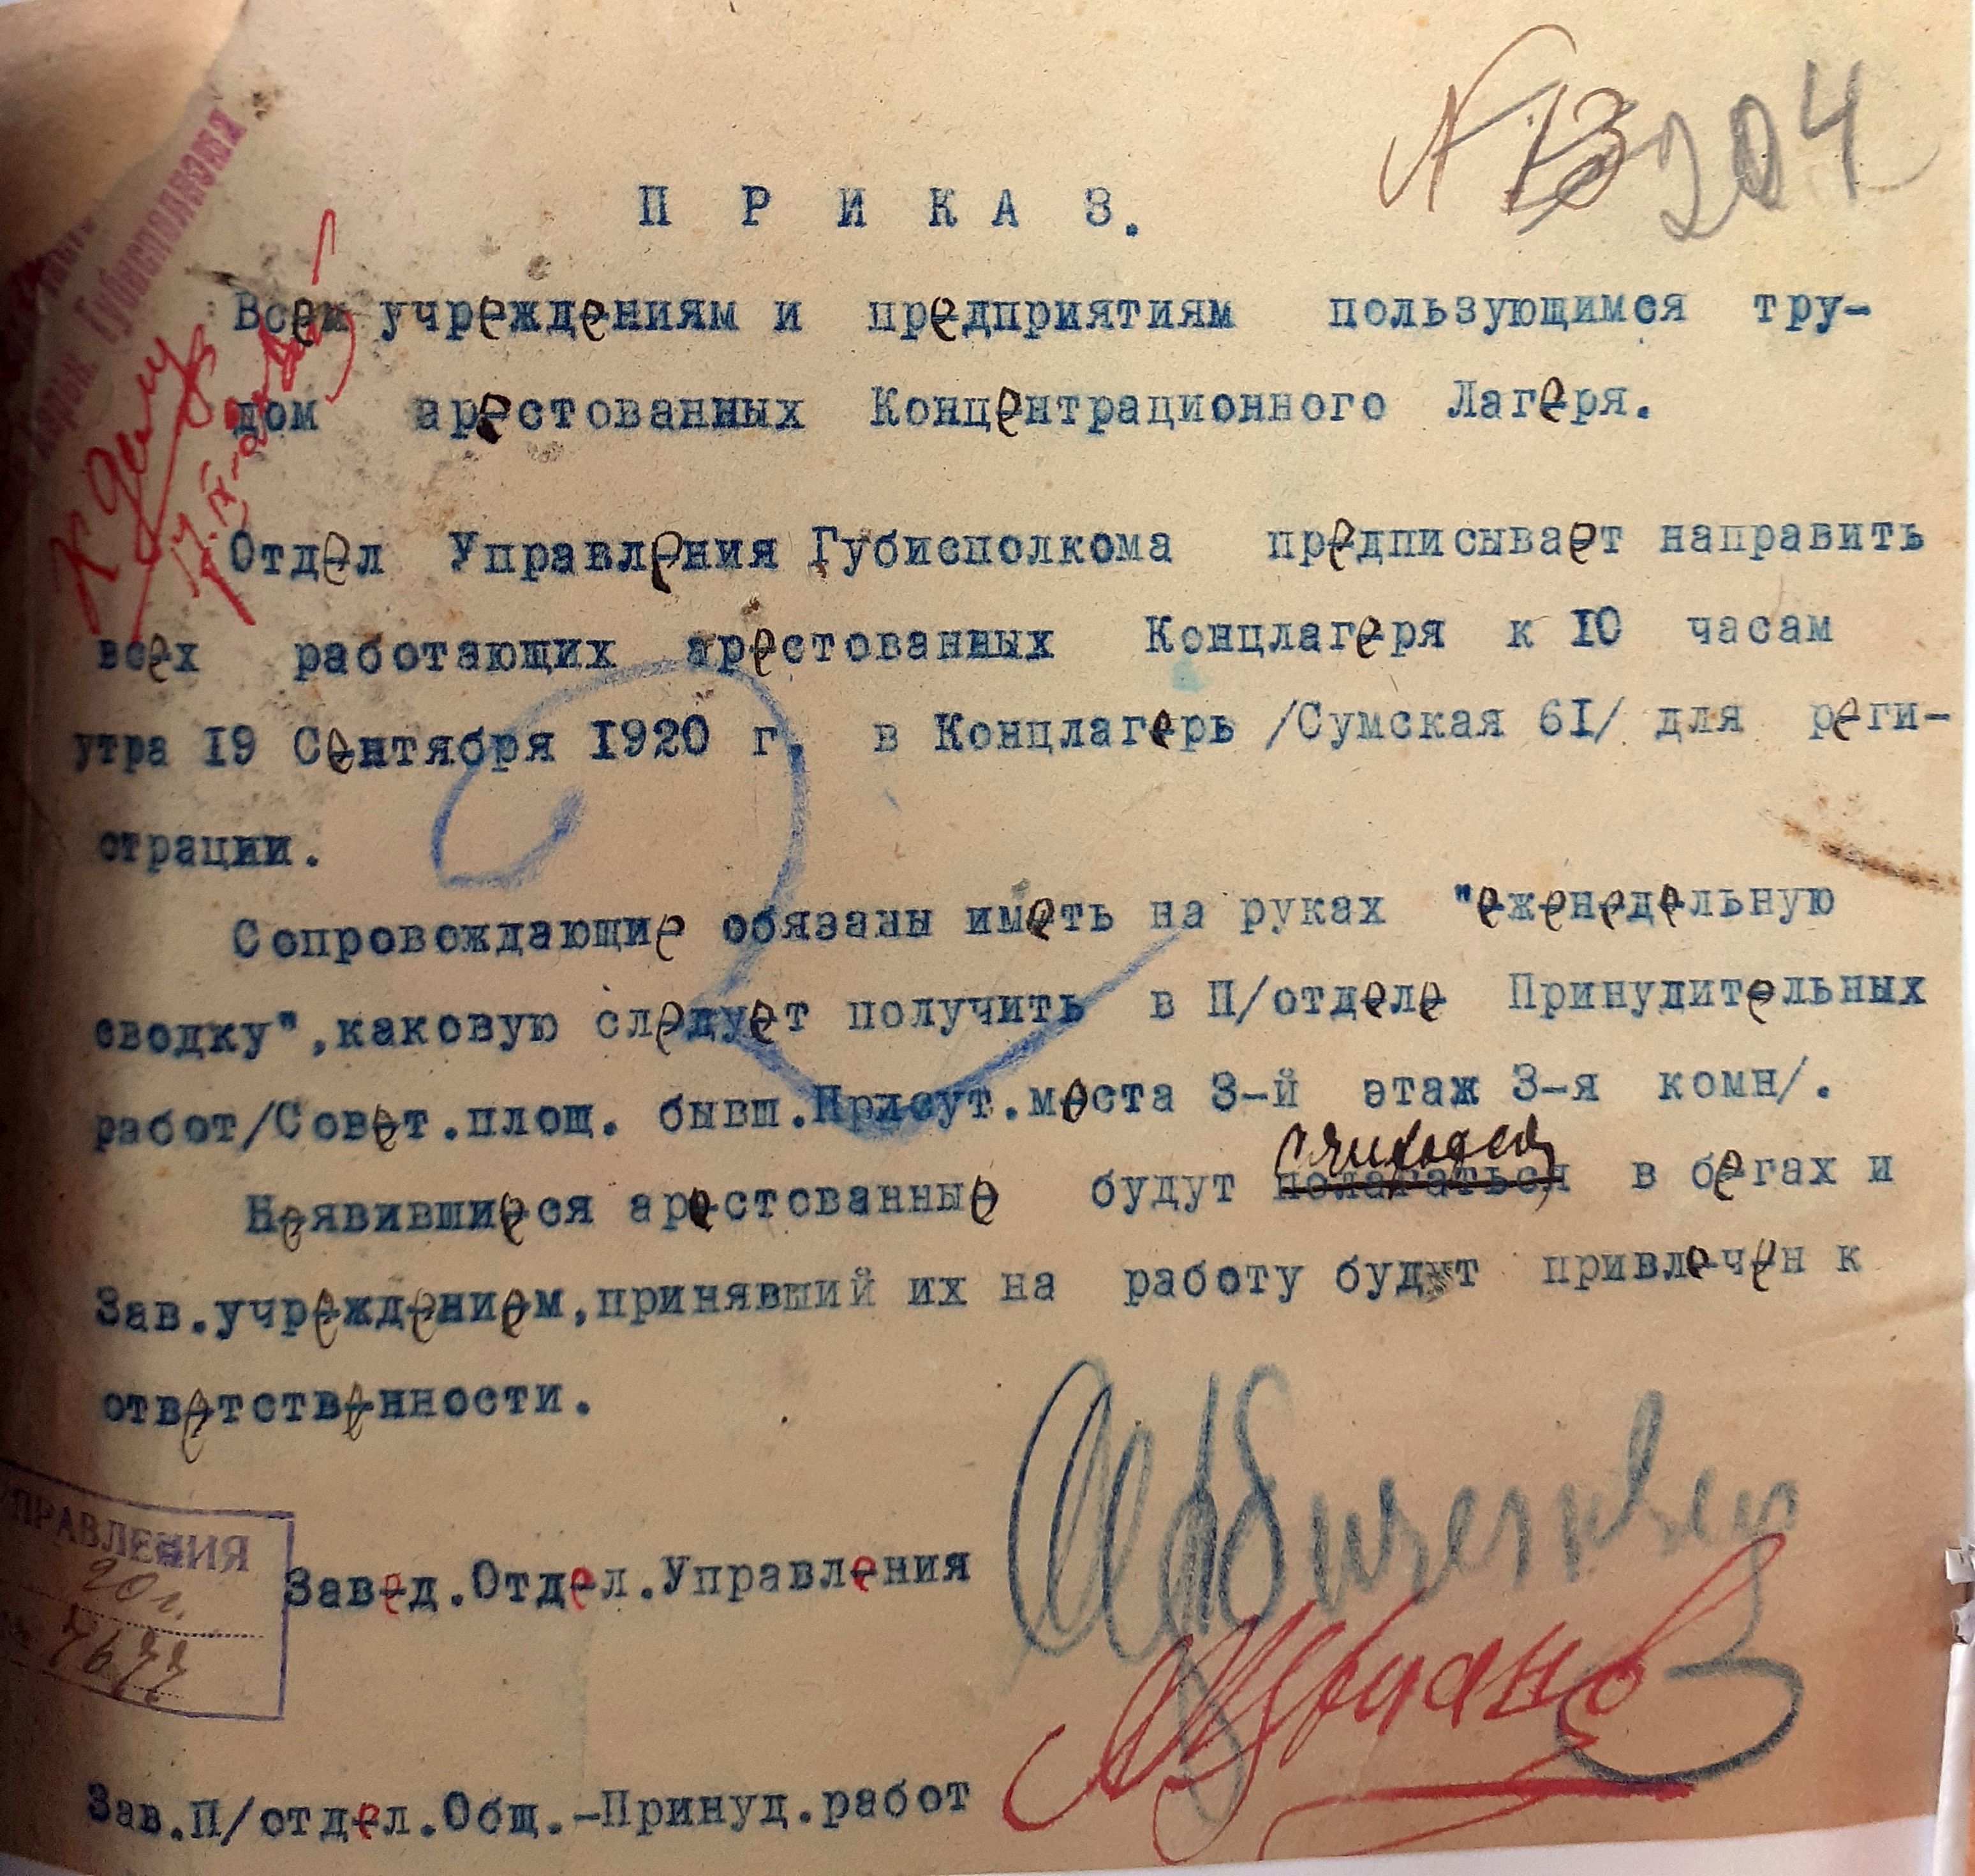 № 13 204
П Р И К А З.
Губисполкома
Всем учреждениям и предприятиям пользующимся тру-
дом арестованных Концентрационного Лагеря.
К делу
Отдел Управления Губисполкома предписывает направить
всех работающих арестованных Концлагеря к 10 часам
утра 19 Сентября 1920 г. в Концлагерь /Сумская 61/ для реги-
страции.
Сопровождающие обязаны иметь на руках "еженедельную
сводку", каковую следует получить в П/отделе Принудительных
работ/Совет.площ. бывш.Присут.места 3-й этаж 3-я комн/.
считаться
Неявившиеся арестованные будут полагаться в бегах и
Зав.учреждением,принявший их на работу будут привлечен к
ответственности.
УПРАВЛЕНИЯ
20 г.
7677
Завед.Отдел.Управления
Зав.П/отдел.Общ.-Принуд.работ